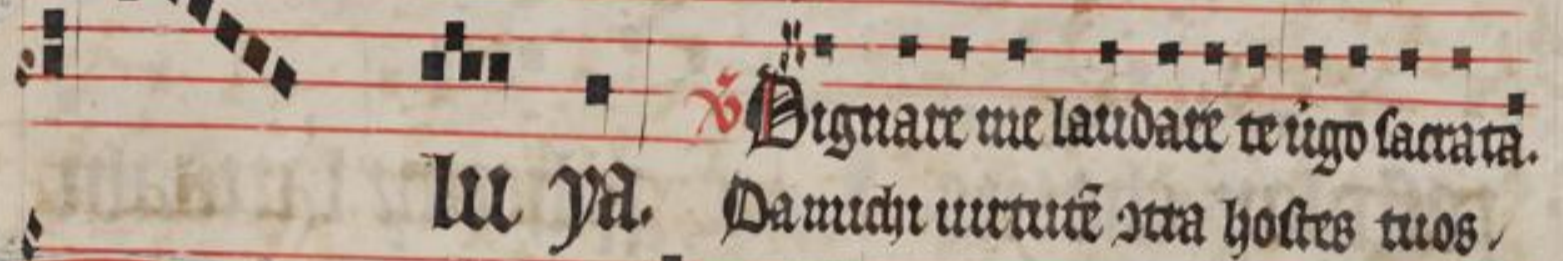 ℣ Dignare me laudare te u͛go sacrata.
lu ya. Da michi uirtutē ↄtra hostes tuos /